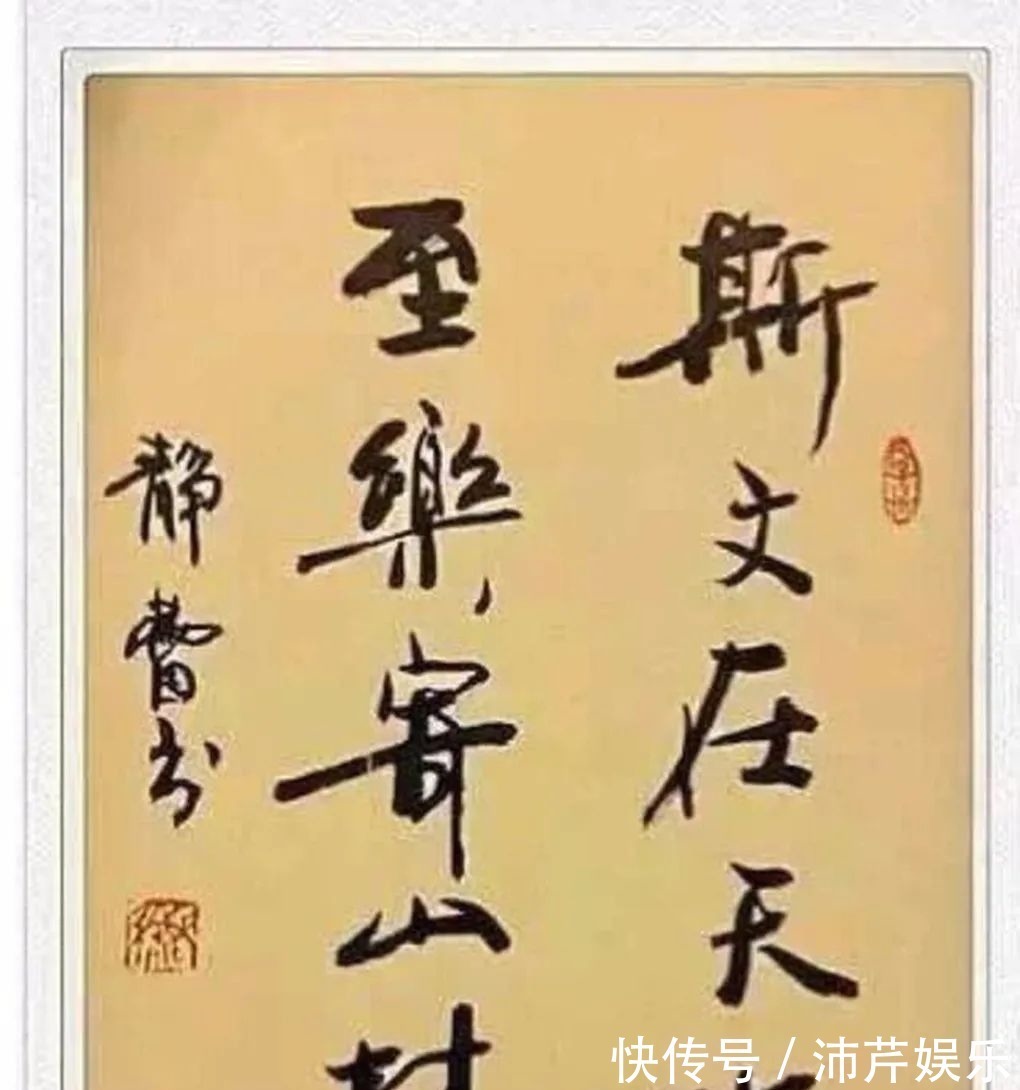 斯文在天
至樂寄山林
静蕾书
快传号 / 沛芹娱乐